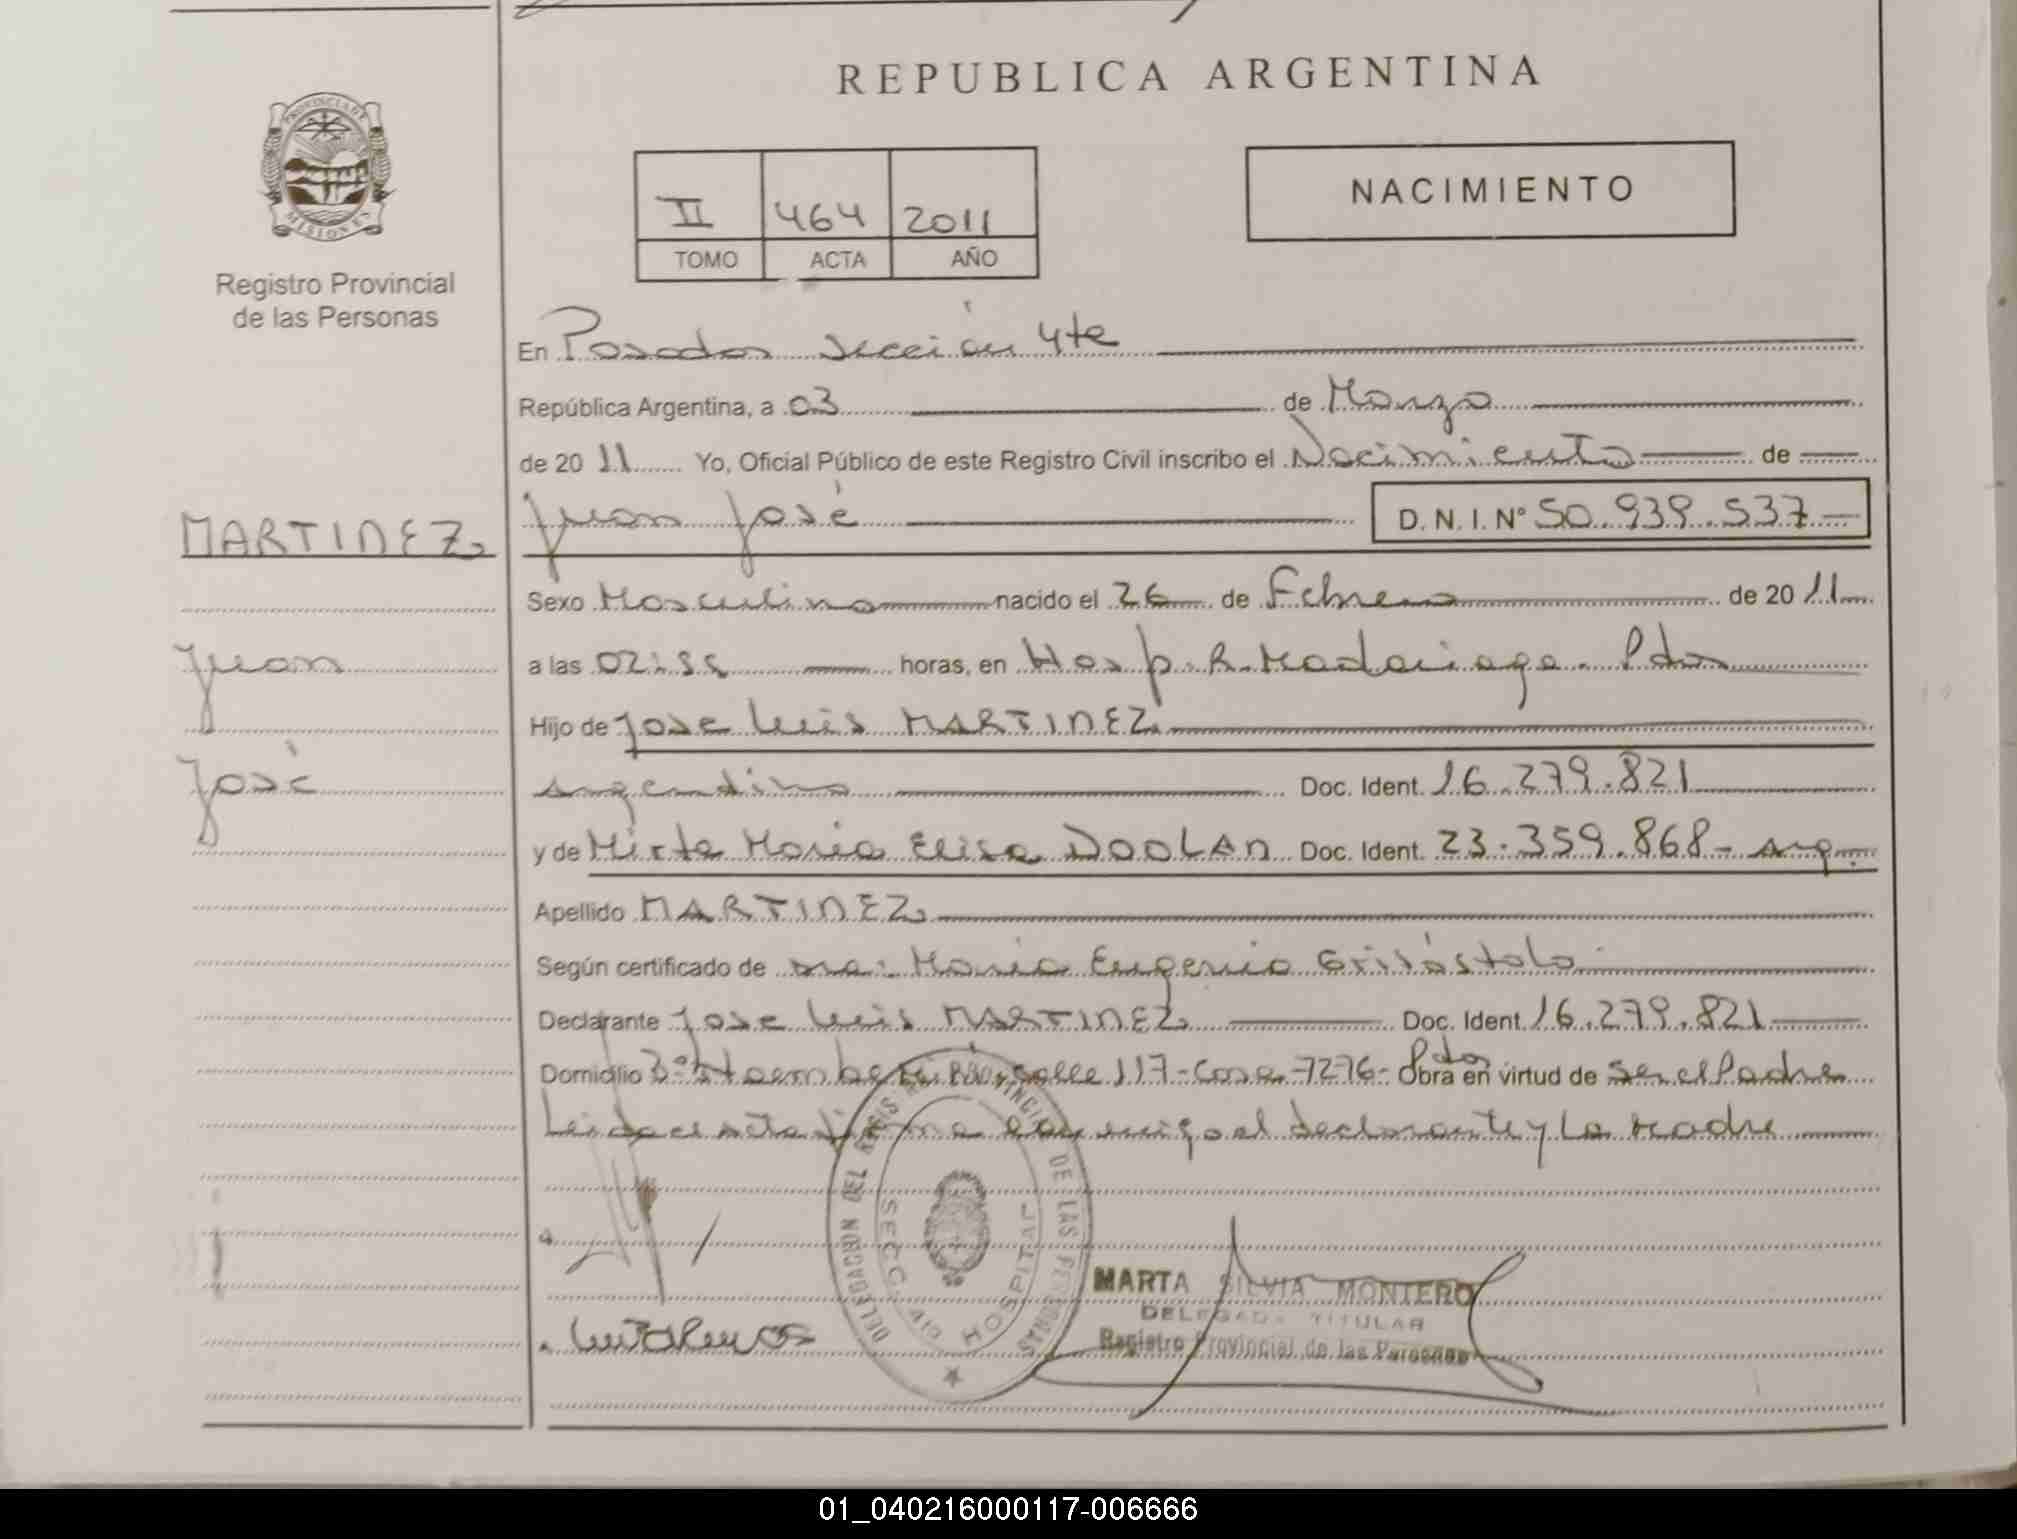 REPUBLICA ARGENTINA
PROVINCIA DE
MISIONES
Registro Provincial
de las Personas
NACIMIENTO
II 464 2011
TOMO ACTA AÑO
En Posadas sección 4te
República Argentina, a 03 de Marzo
de 2011 Yo, Oficial Público de este Registro Civil inscribo el Nacimiento de
MARTINEZ
Juan José D.N.I. Nº 50.939.537
Sexo Masculino nacido el 26 de Febrero de 2011
Juan
a las 02: horas, en Hosp. R. Madariaga. Pdas
Hijo de Jose Luis MARTINEZ
José
argentino Doc. Ident. 16.279.821
y de Mirta Maria Elisa DOOLAN Doc. Ident. 23.359.868 - arg.
Apellido MARTINEZ
Según certificado de Dra: Maria Eugenia
Declarante Jose Luis MARTINEZ Doc. Ident. 16.279.821
Domicilio calle 117-Casa-7276- Pdas Obra en virtud de Ser el Padre
Leida el acta firma conmigo el declarante y La Madre
DELEGACION DEL REGISTRO PROVINCIAL DE LAS PERSONAS
SECC. HOSPITAL
MARTA SILVIA MONTERO
DELEGADA TITULAR
Registro Provincial de las Personas
01_040216000117-006666